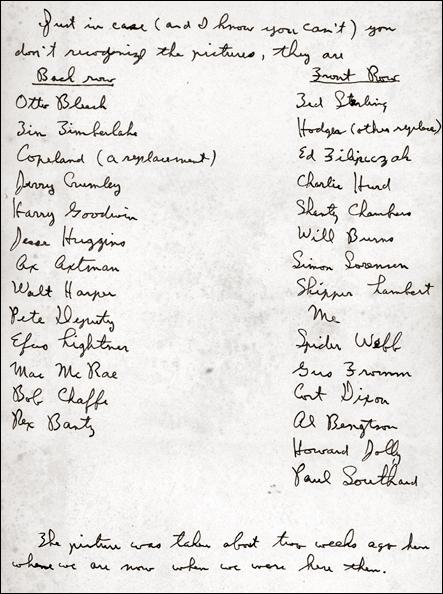 Just in case (and I know you can't) you
don't recognize the pictures, they are
Back row
Otto
Tim Timberlake
Copeland (a replacement)
Jerry Crumley
Harry Goodwin
Jesse Huggins
Ax Axtman
Walt Harper
Pete Deputy
Lightner
Mac McRae
Bob Chaffe
Rex Bantz
Front Row
Ted Sterling
Hodges (other replace)
Ed Filipczak
Charlie Hurd
Shorty Chambers
Will Burns
Simon Sorensen
Skipper Lambert
Me
Spider Webb
Gus Fromm
Cort Dixon
Al Bengtson
Howard Jolly
Paul Southard
The picture was taken about two weeks ago here
where we are now when we were here then.